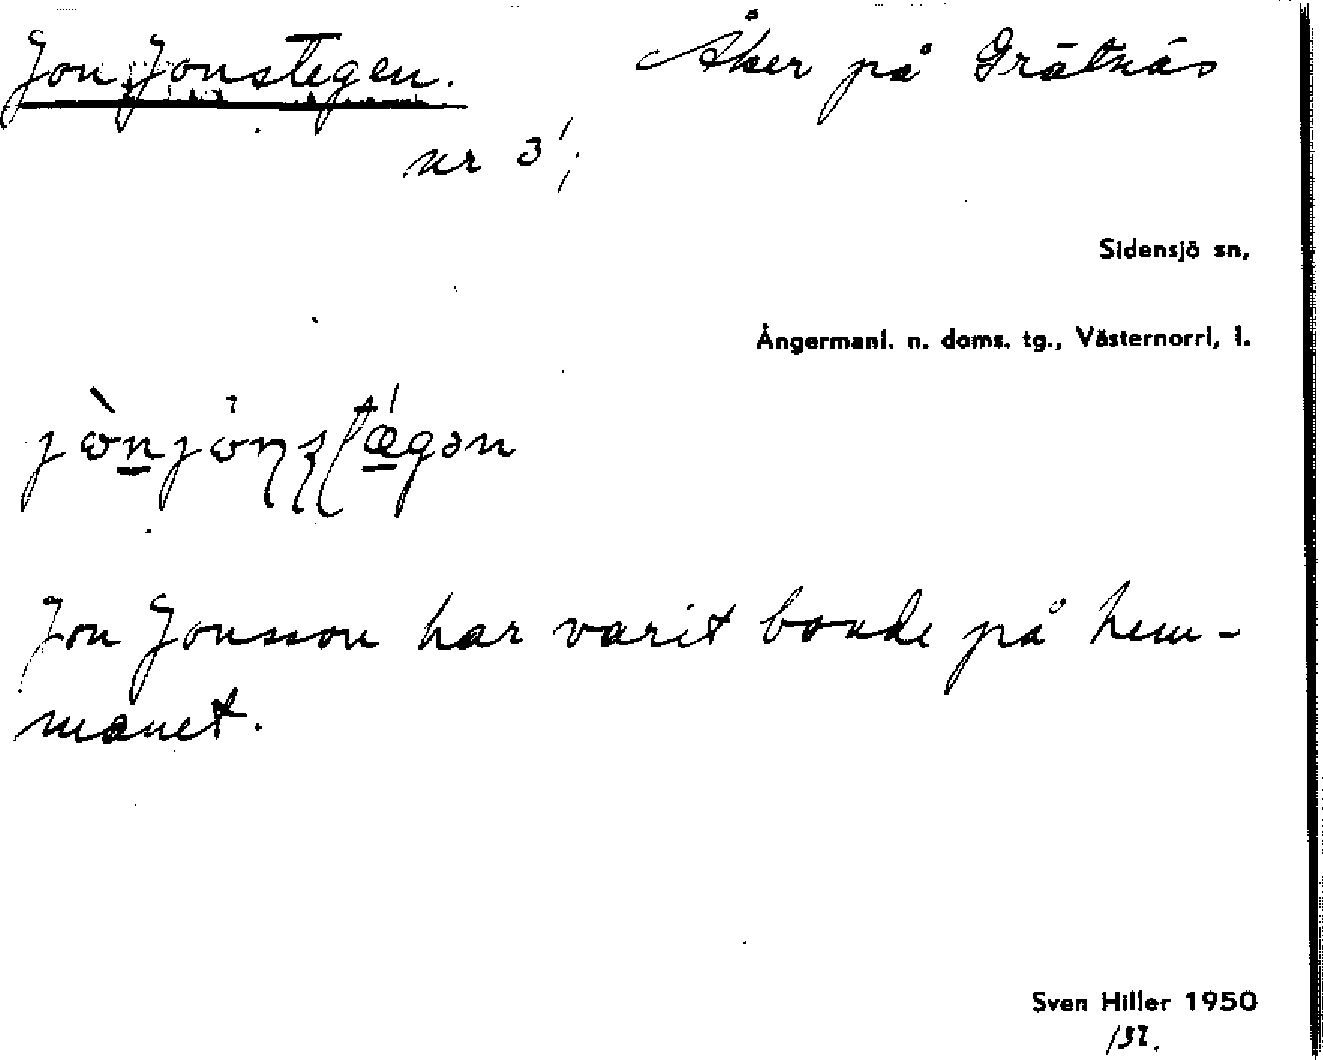 Jon Jonstegen. Åker på Grätnäs
nr 3¹;
Sidensjö sn,
Ångermanl. n. doms. tg., Västernorrl, l.
Jon Jonsson har varit bonde på hem-
manet.
Sven Hiller 1950